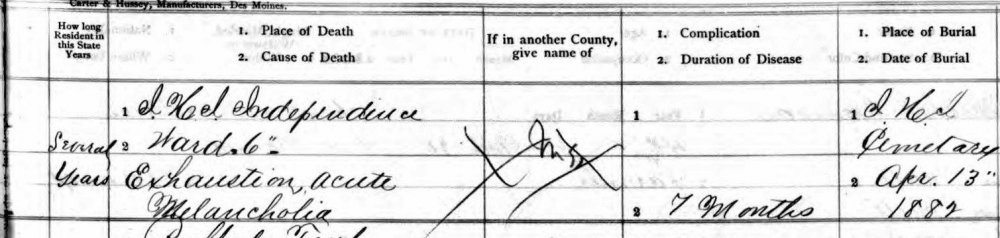 Carter & Hussey, Manufacturers, Des Moines.
How long
Resident in
this State
Years
1. Place of Death
2. Cause of Death
If in another County,
give name of
1. Complication
2. Duration of Disease
1. Place of Burial
2. Date of Burial
1 I. H. I. Independence
Several 2 Ward. 6"
Years Exhaustion, acute
Melancholia
1
2 7 Months
1 I. H. I
Cemetary
2 Apr. 13"
1882